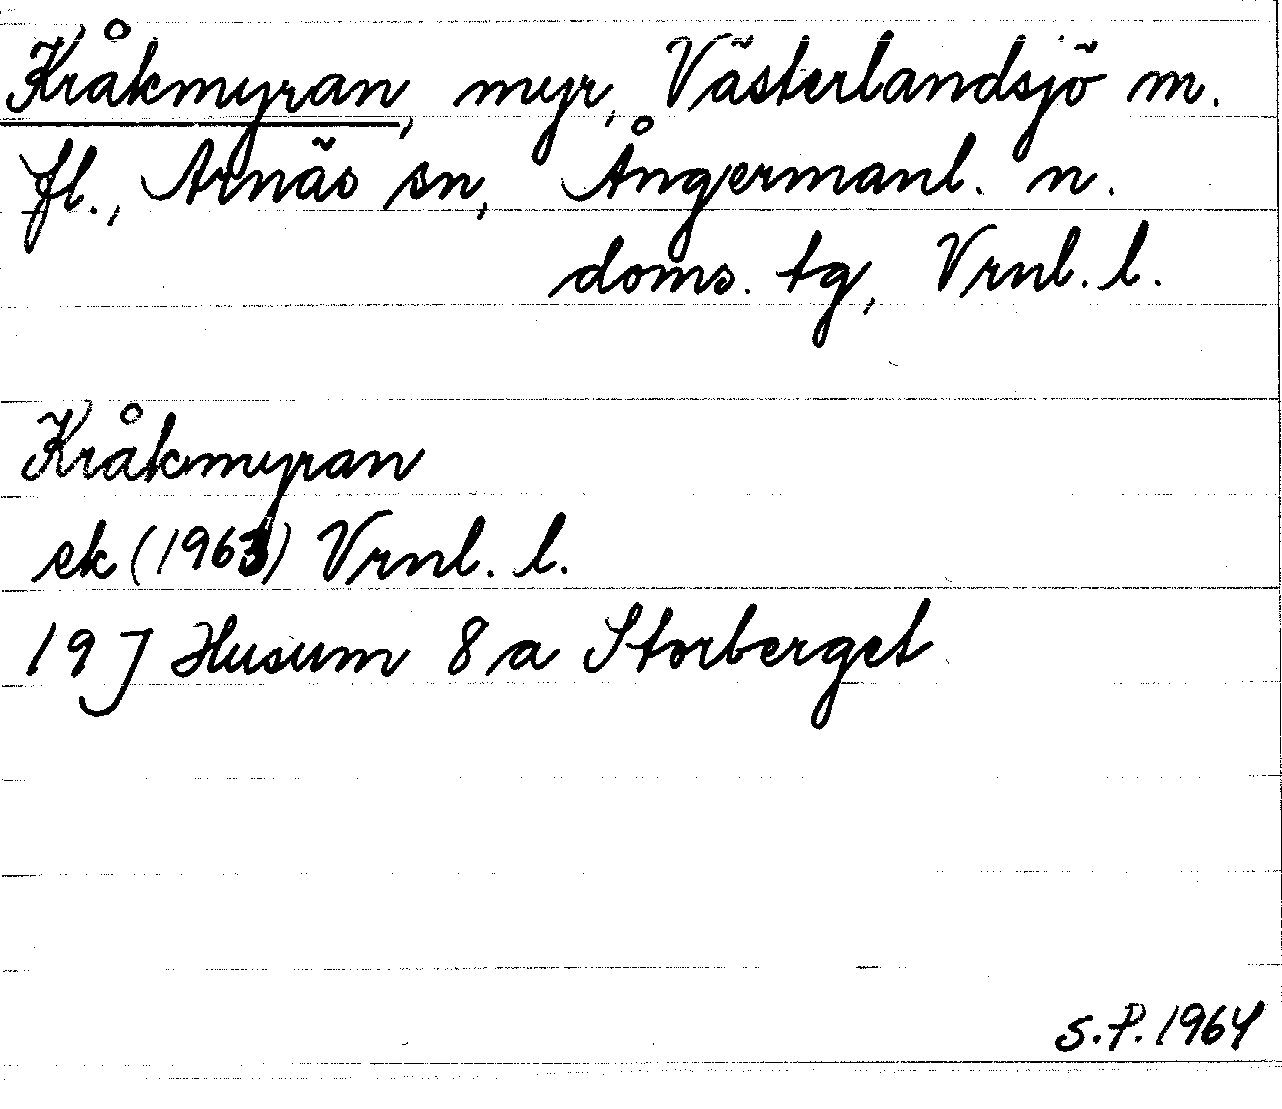 Kråkmyran, myr, Västerlandsjö m.
fl., Arnäs sn, Ångermanl. n.
doms. tg, Vrnl. l.
Kråkmyran
ek (1963) Vrnl. l.
19 J Husum 8 a Storberget
S.P. 1964